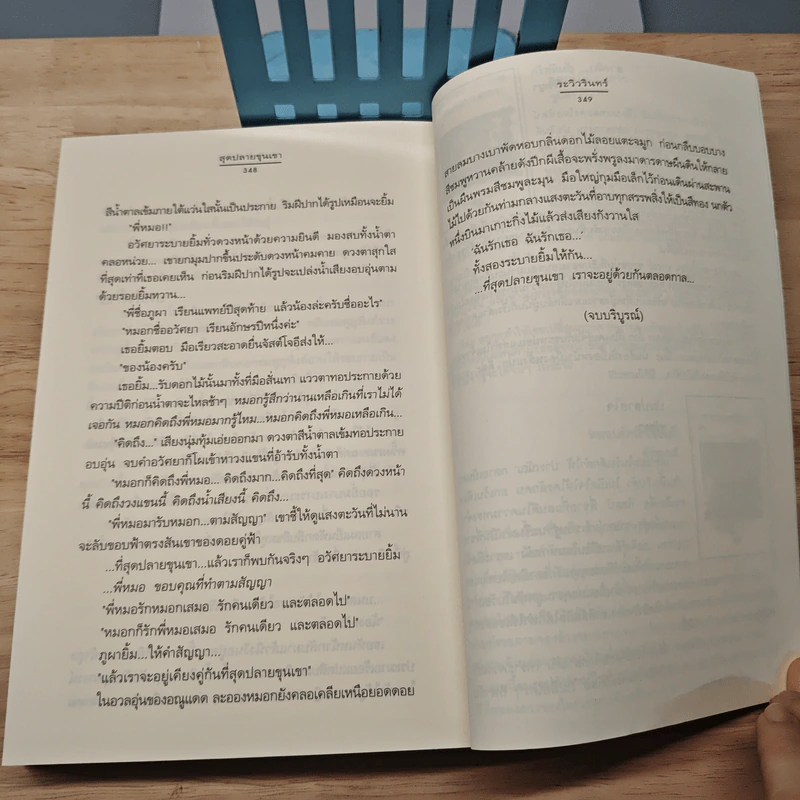 สุดปลายขุนเขา
348
สีน้ำตาลเข้มภายใต้แว่นใสนั้นเป็นประกาย ริมฝีปากได้รูปเหมือนจะยิ้ม
"พี่หมอ!!"
อวัศยาระบายยิ้มทั่วดวงหน้าด้วยความยินดี มองสบทั้งน้ำตา
คลอหน่วย... เขายกมุมปากขึ้นประดับดวงหน้าคมคาย ดวงตาสุกใส
ที่สุดเท่าที่เธอเคยเห็น ก่อนริมฝีปากได้รูปจะเปล่งน้ำเสียงอบอุ่นตาม
ด้วยรอยยิ้มหวาน...
"พี่ชื่อภูผา เรียนแพทย์ปีสุดท้าย แล้วน้องล่ะครับชื่ออะไร"
"หมอกชื่ออวัศยา เรียนอักษรปีหนึ่งค่ะ"
เธอยิ้มตอบ มือเรียวสะอาดยื่นจัสต์โจอีส่งให้...
"ของน้องครับ"
เธอยิ้ม...รับดอกไม้นั้นมาทั้งที่มือสั่นเทา แววตาทอประกายด้วย
ความปีติก่อนน้ำตาจะไหลช้าๆ หมอกรู้สึกว่านานเหลือเกินที่เราไม่ได้
เจอกัน หมอกคิดถึงพี่หมอมากรู้ไหม...หมอกคิดถึงพี่หมอเหลือเกิน...
"คิดถึง..." เสียงนุ่มทุ้มเอ่ยออกมา ดวงตาสีน้ำตาลเข้มทอประกาย
อบอุ่น จบคำอวัศยาก็โผเข้าหาวงแขนที่อ้ารับทั้งน้ำตา
"หมอกก็คิดถึงพี่หมอ... คิดถึงมาก...คิดถึงที่สุด" คิดถึงดวงหน้า
นี้ คิดถึงวงแขนนี้ คิดถึงน้ำเสียงนี้ คิดถึง...
"พี่หมอมารับหมอก...ตามสัญญา" เขาชี้ให้ดูแสงตะวันที่ไม่นาน
จะลับขอบฟ้าตรงสันเขาของดอยคู่ฟ้า
...ที่สุดปลายขุนเขา...แล้วเราก็พบกันจริงๆ อวัศยาระบายยิ้ม
...พี่หมอ ขอบคุณที่ทำตามสัญญา
"พี่หมอรักหมอกเสมอ รักคนเดียว และตลอดไป"
"หมอกก็รักพี่หมอเสมอ รักคนเดียว และตลอดไป"
ภูผายิ้ม...ให้คำสัญญา...
"แล้วเราจะอยู่เคียงคู่กันที่สุดปลายขุนเขา"
ในอวลอุ่นของอณูแดด ละอองหมอกยังคลอเคลียเหนือยอดดอย
ระวิวรินทร์
349
สายลมบางเบาพัดหอบกลิ่นดอกไม้ลอยแตะจมูก ก่อนกลีบบอบบาง
สีชมพูหวานคล้ายดังปีกผีเสื้อจะพรั่งพรูลงมาดารดาษผืนดินให้กลาย
เป็นผืนพรมสีชมพูละมุน มือใหญ่กุมมือเล็กไว้ก่อนเดินผ่านสะพาน
ไม้ไปด้วยกันท่ามกลางแสงตะวันที่อาบทุกสรรพสิ่งให้เป็นสีทอง นกตัว
หนึ่งบินมาเกาะกิ่งไม้แล้วส่งเสียงกังวานใส
'ฉันรักเธอ ฉันรักเธอ...'
ทั้งสองระบายยิ้มให้กัน...
...ที่สุดปลายขุนเขา เราจะอยู่ด้วยกันตลอดกาล...
(จบบริบูรณ์)